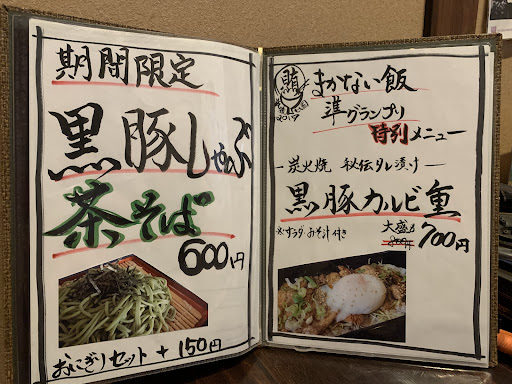 期間限定
黒豚しゃぶ
茶そば
600円
おにぎりセット + 150円
まかない飯
準グランプリ
特別メニュー
炭火焼 秘伝タレ漬け
黒豚カルビ重
※サラダ・おみそ汁付き
大盛も
700円